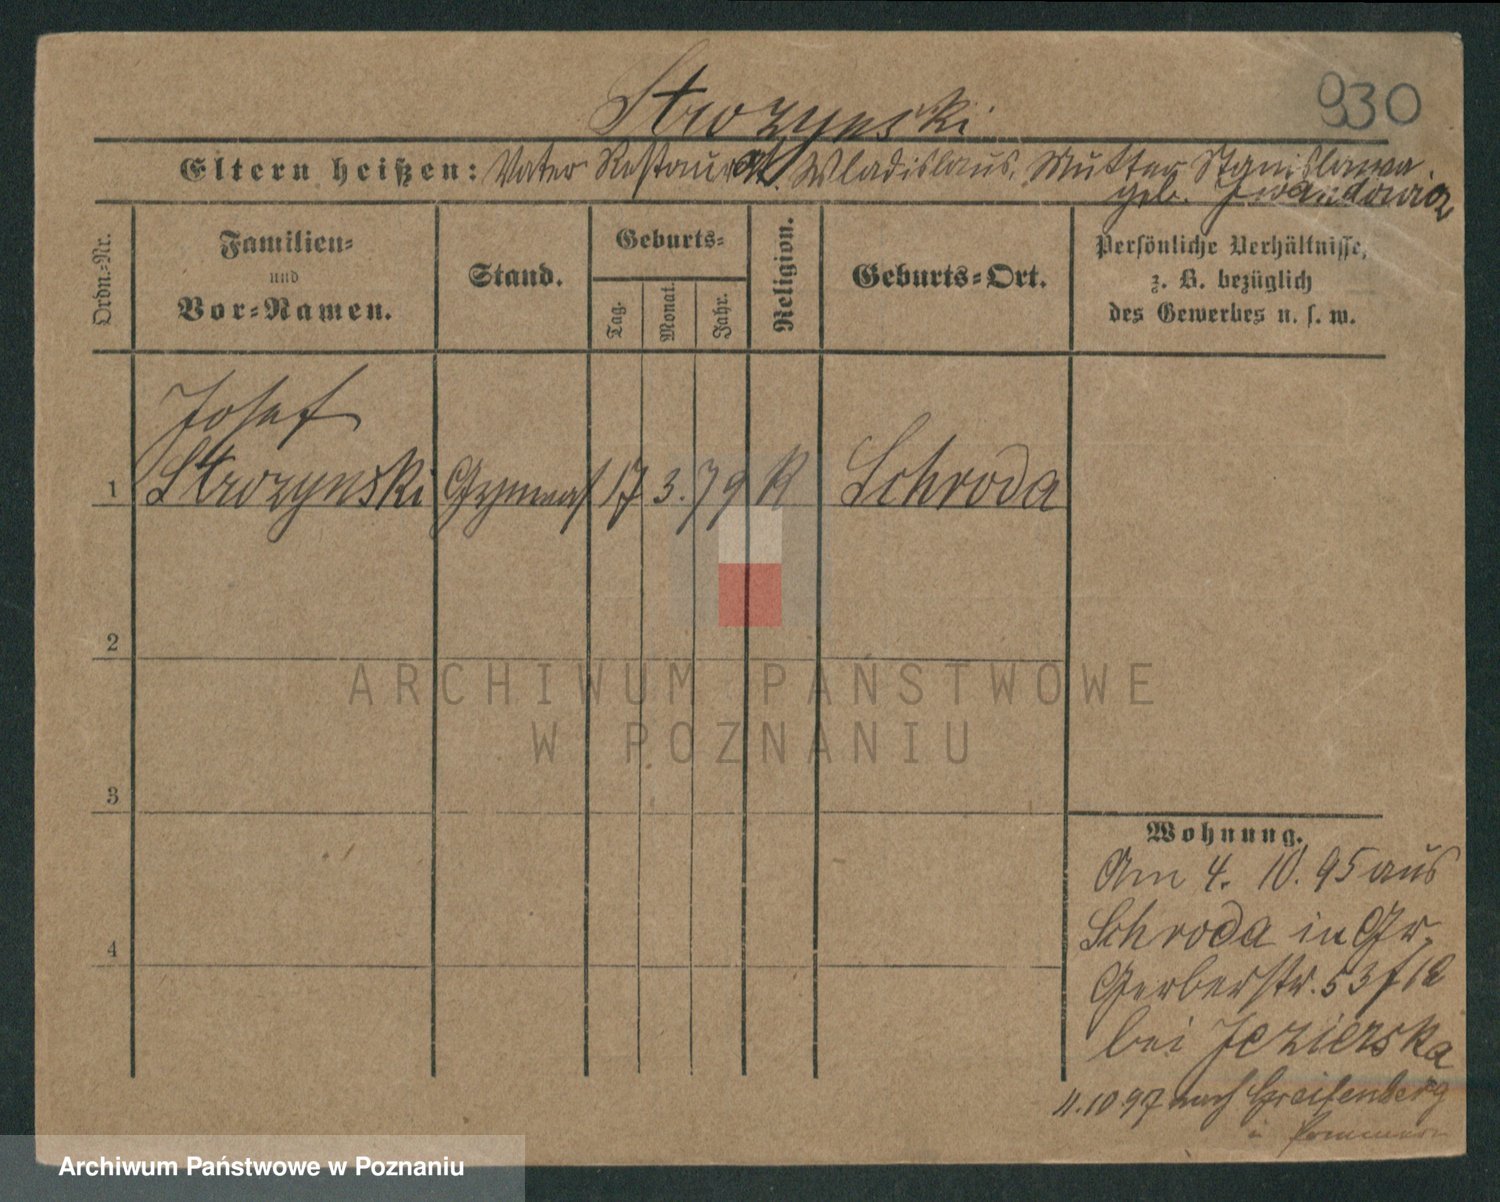 930
Strozynski
Eltern heißen: Vater Restaurat. Wladislaus, Mutter Stanislawa
geb. Iwandowicz
Ordn.-Nr.
Familien-
und
Vor-Namen.
Stand.
Geburts-
Tag.
Monat.
Jahr.
Religion.
Geburts-Ort.
Persönliche Verhältnisse,
z. B. bezüglich
des Gewerbes u. s. w.
Josef
1 Strozynski Gymnas 17 3. 79 K Schroda
2
3
4
Wohnung.
Am 4. 10. 95 aus
Schroda in Gr.
Gerberstr. 53
bei Jezierska
11.10 97 nach Greifenberg
i Pommern
ARCHIWUM PAŃSTWOWE
W POZNANIU
Archiwum Państwowe w Poznaniu